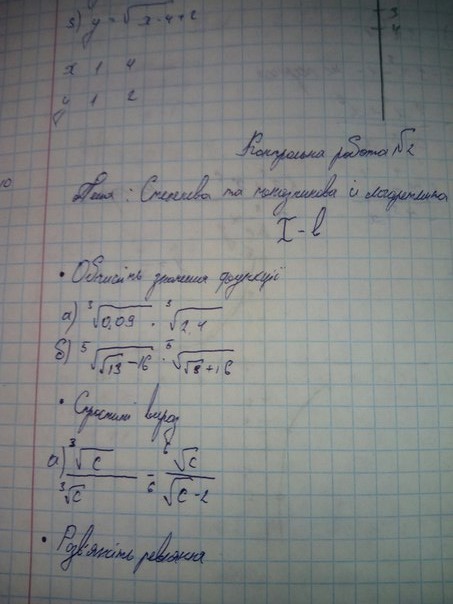 3) y = √x-4+2
x 1 4
y 1 2
3
4
10
Контрольна робота №2
Тема: Степенева та показникова й логарифмічна
I-в
• Обчисліть значення функції
а) ³√0,09 · ³√2,4
б) ⁵√√13-16 · ⁶√√3+16
• Спростити вираз
а) ³√c / ³√c - ⁶√c / ⁶√c-2
• Розв'яжіть рівняння